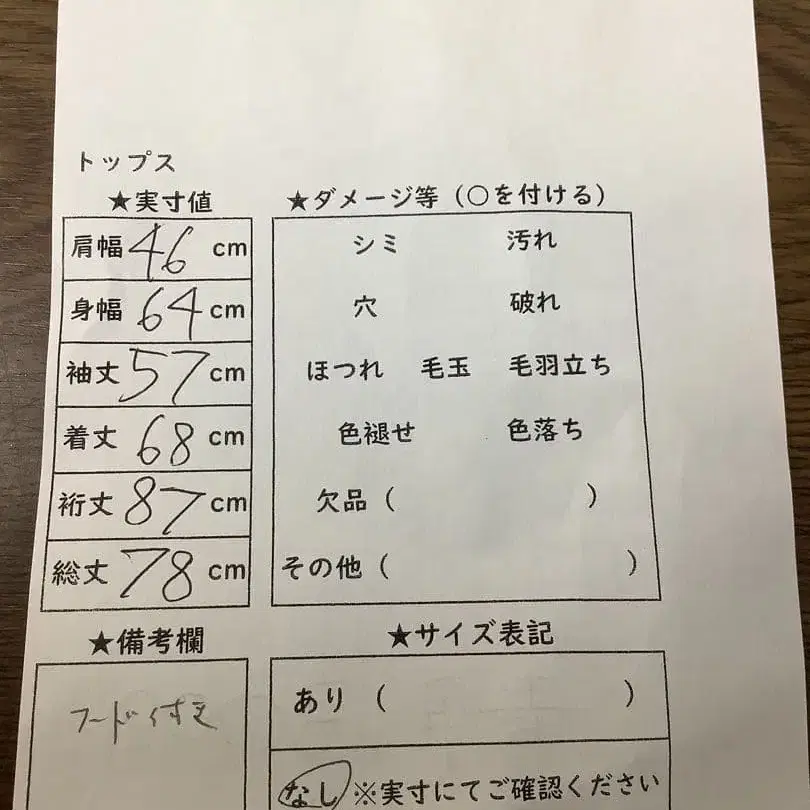 トップス
★実寸値
肩幅 46 cm
身幅 64 cm
袖丈 57 cm
着丈 68 cm
裄丈 87 cm
総丈 78 cm
★ダメージ等（○を付ける）
シミ 汚れ
穴 破れ
ほつれ 毛玉 毛羽立ち
色褪せ 色落ち
欠品（ ）
その他（ ）
★備考欄
フード付き
★サイズ表記
あり（ ）
なし ※実寸にてご確認ください